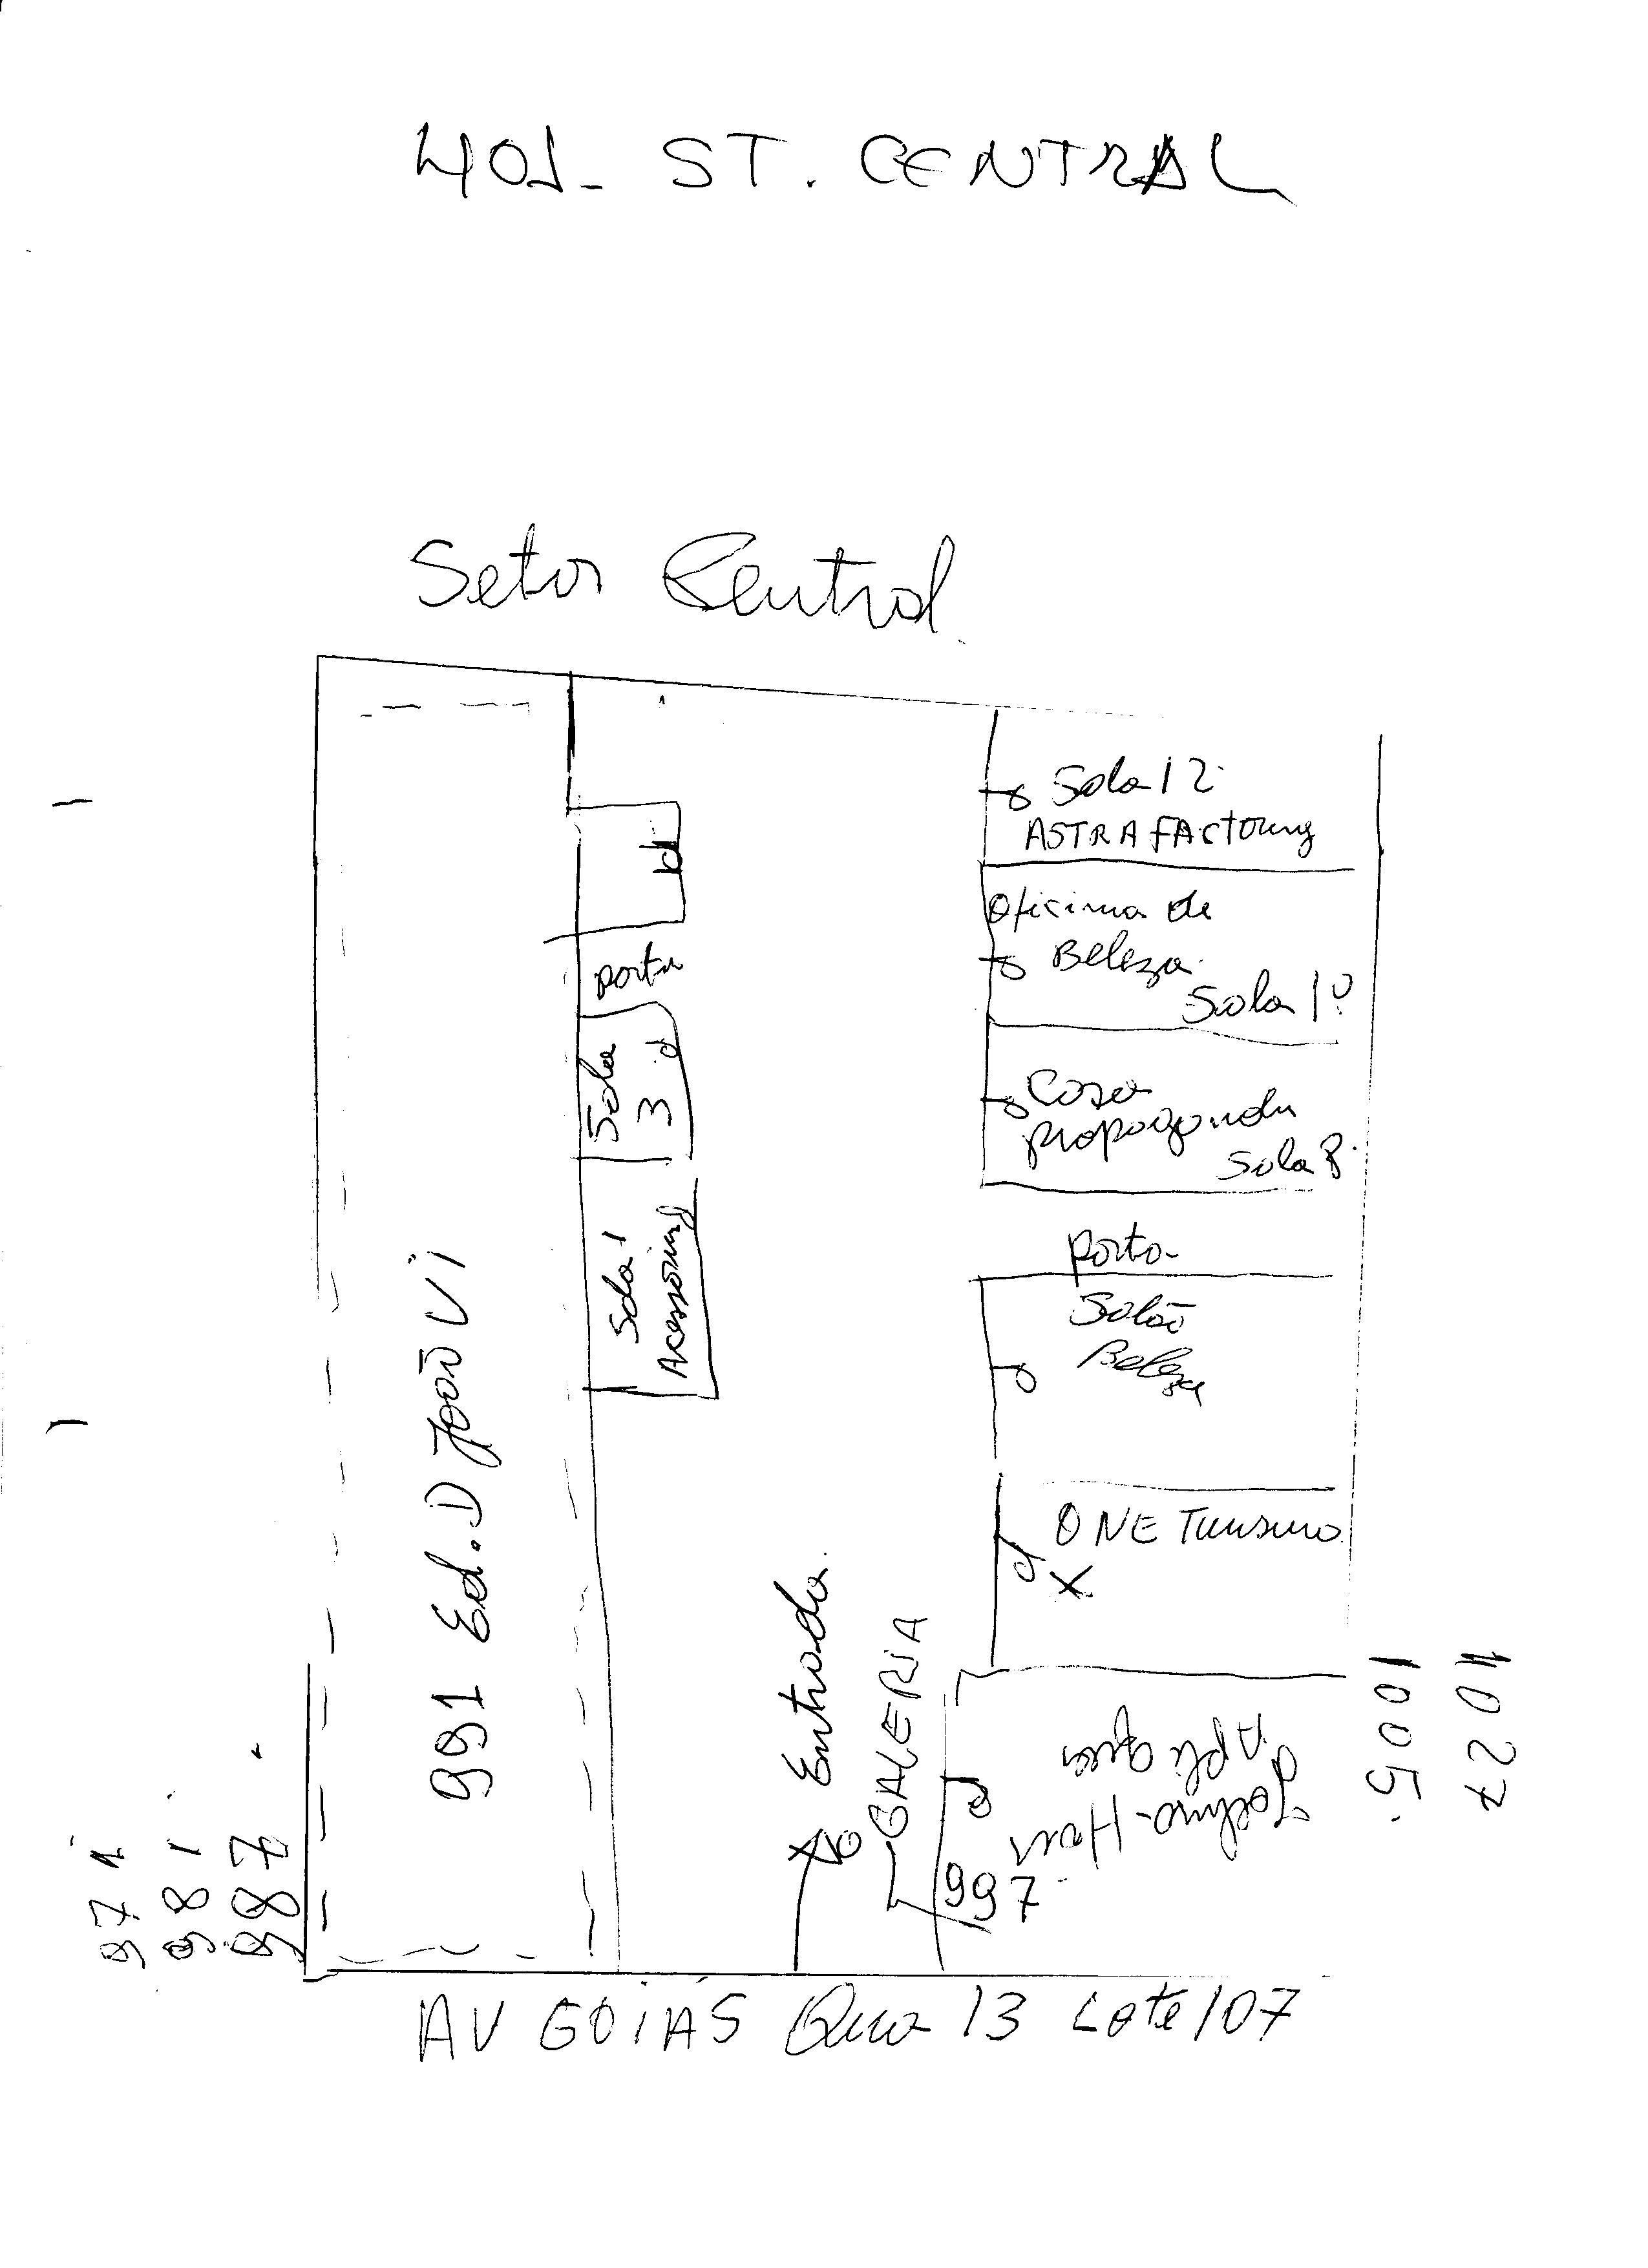 401 - ST. CENTRAL
Setor Central
Sala 12
ASTRA FACTORING
Oficina de
Beleza
Sala 10
porta
Sala
3
Casa
propaganda
Sala 8
Sala 1
Acessoria
porta
Salão
Beleza
991 Ed. D João Vi
ONE Turismo
X
Entrada
GALERIA
997
1005
1027
971
981
987
AV GOIÁS Qua 13 Lote 107